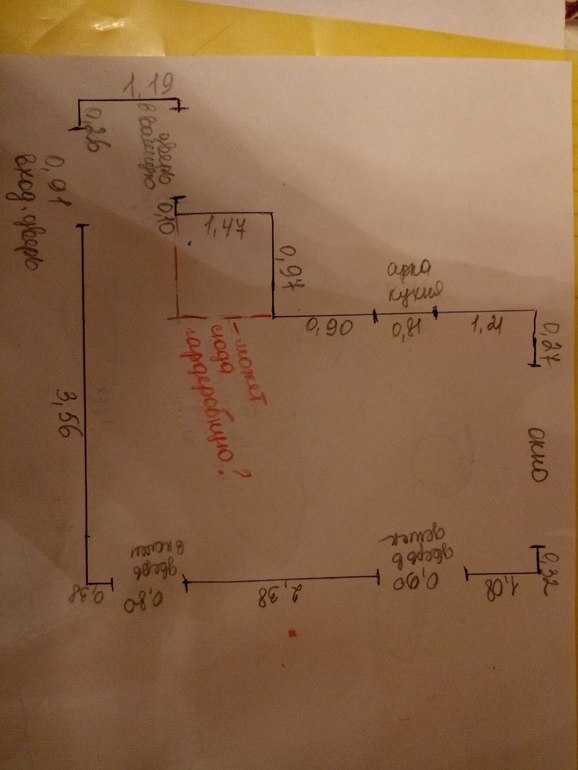 1,19
0,26
дверь
в ванную
0,91
вход. дверь
0,10
1,47
0,97
арка
кухня
0,90
0,81
1,21
0,27
- может
сюда
гардеробную?
3,56
окно
0,38
0,80
дверь
2,38
0,90
дверь в
1,08
0,32